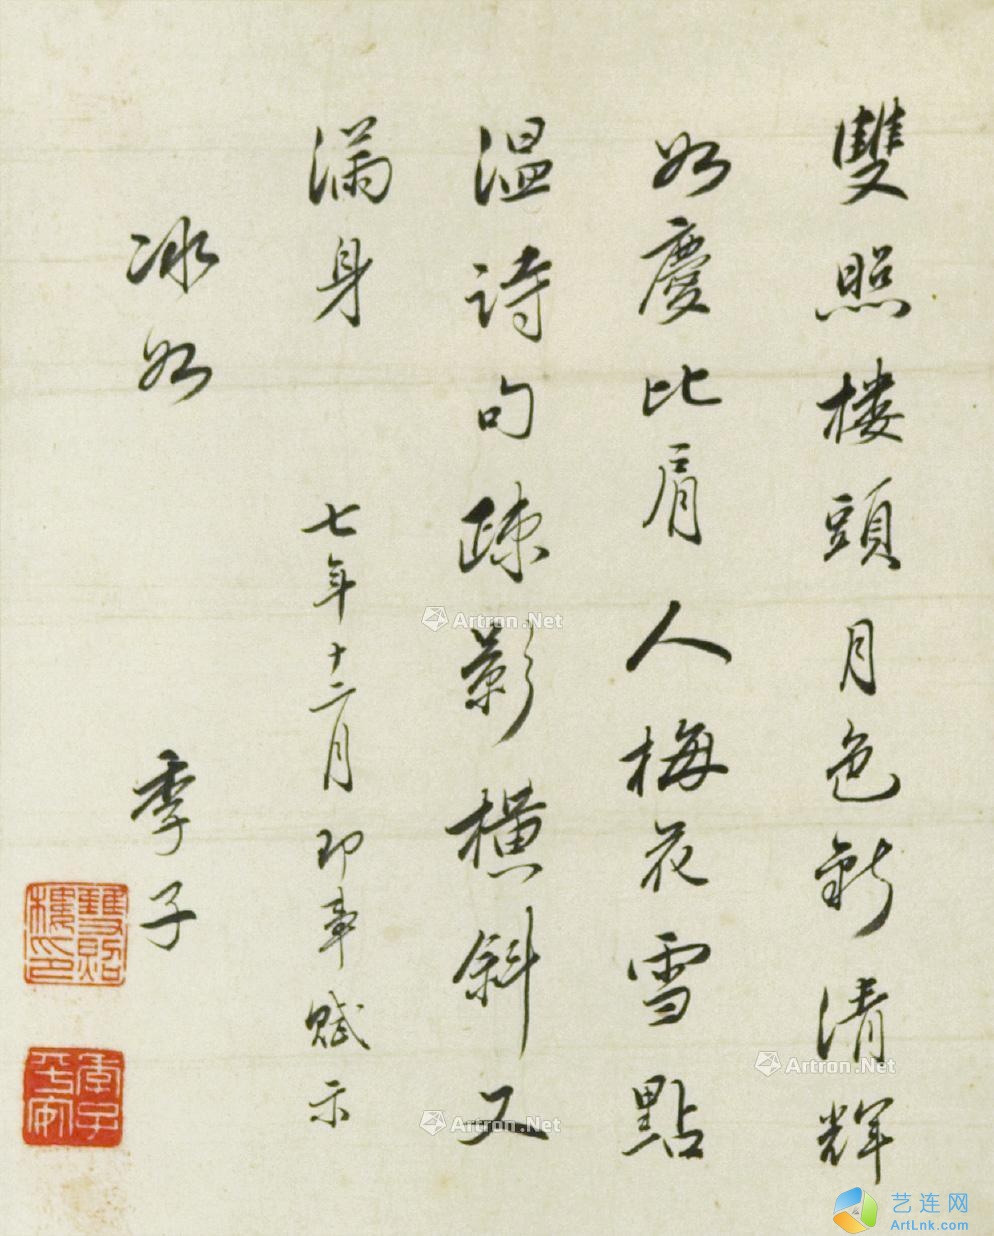 雙照樓頭月色新清輝
如慶比肩人梅花雪點
温詩句疎影橫斜又
滿身
七年十二月即事賦示
冰如
季子
雙照樓印
季子平安
Artron.Net
Artron.Net
Artron.Net
艺连网
ArtLnk.com